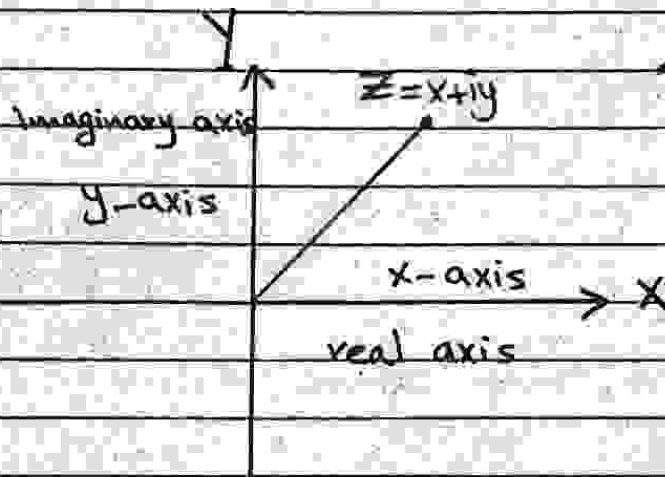 Y
Z=x+iy
Imaginary axis
y-axis
x-axis
X
real axis